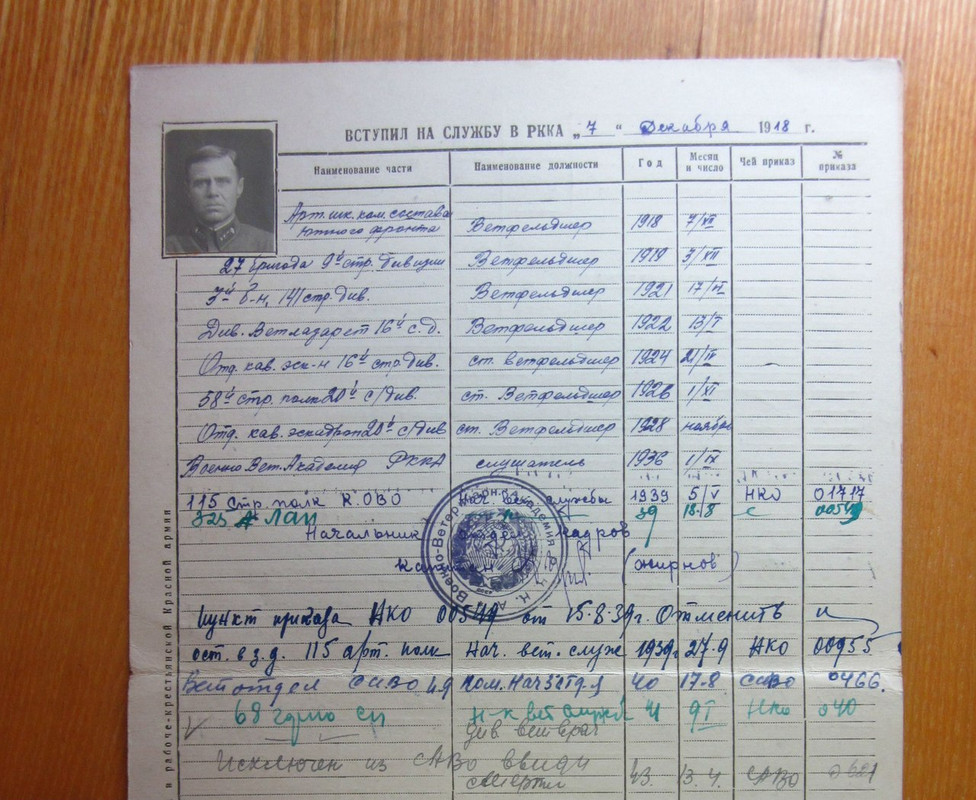 ВСТУПИЛ НА СЛУЖБУ В РККА „7“ Декабря 1918 г.
Наименование части Наименование должности Год Месяц и число Чей приказ № приказа
Арт. шк. ком. состава
Южного фронта Ветфельдшер 1918 7/XII
27 бригада 9й стр. дивизии Ветфельдшер 1919 3/XII
3й б-н, 141 стр. див. Ветфельдшер 1921 17/VI
Див. Ветлазарет 16й с. д. Ветфельдшер 1922 13/I
Отд. кав. эск-н 16й стр. див. ст. ветфельдшер 1924 21/IV
58й стр. полк 20й с/див. ст. Ветфельдшер 1926 1/XI
Отд. кав. эскадрон 20й с/див ст. Ветфельдшер 1928 ноября
Военно Вет. Академия РККА слушатель 1936 1/IX
115 Стр. полк КОВО Нач. вет службы 1939 5/V НКО 01717
323 АП 39 15-8 00549
Начальник отдел кадров
(Жирнов)
Пункт приказа НКО 00549 от 15.8.39г. Отменить и
ост. в з. д. 115 арт. полк Нач. вет. служ 1939г 27.9 НКО 00955
Вет отдел САВО пом. Нач 40 17-8 САВО 0466.
68 сд Н-к вет службы 41 9/I НКО 040
див ветврач
Исключен из САВО ввиду
смерти 43. 13.4. САВО 0621
и рабоче-крестьянской Красной армии